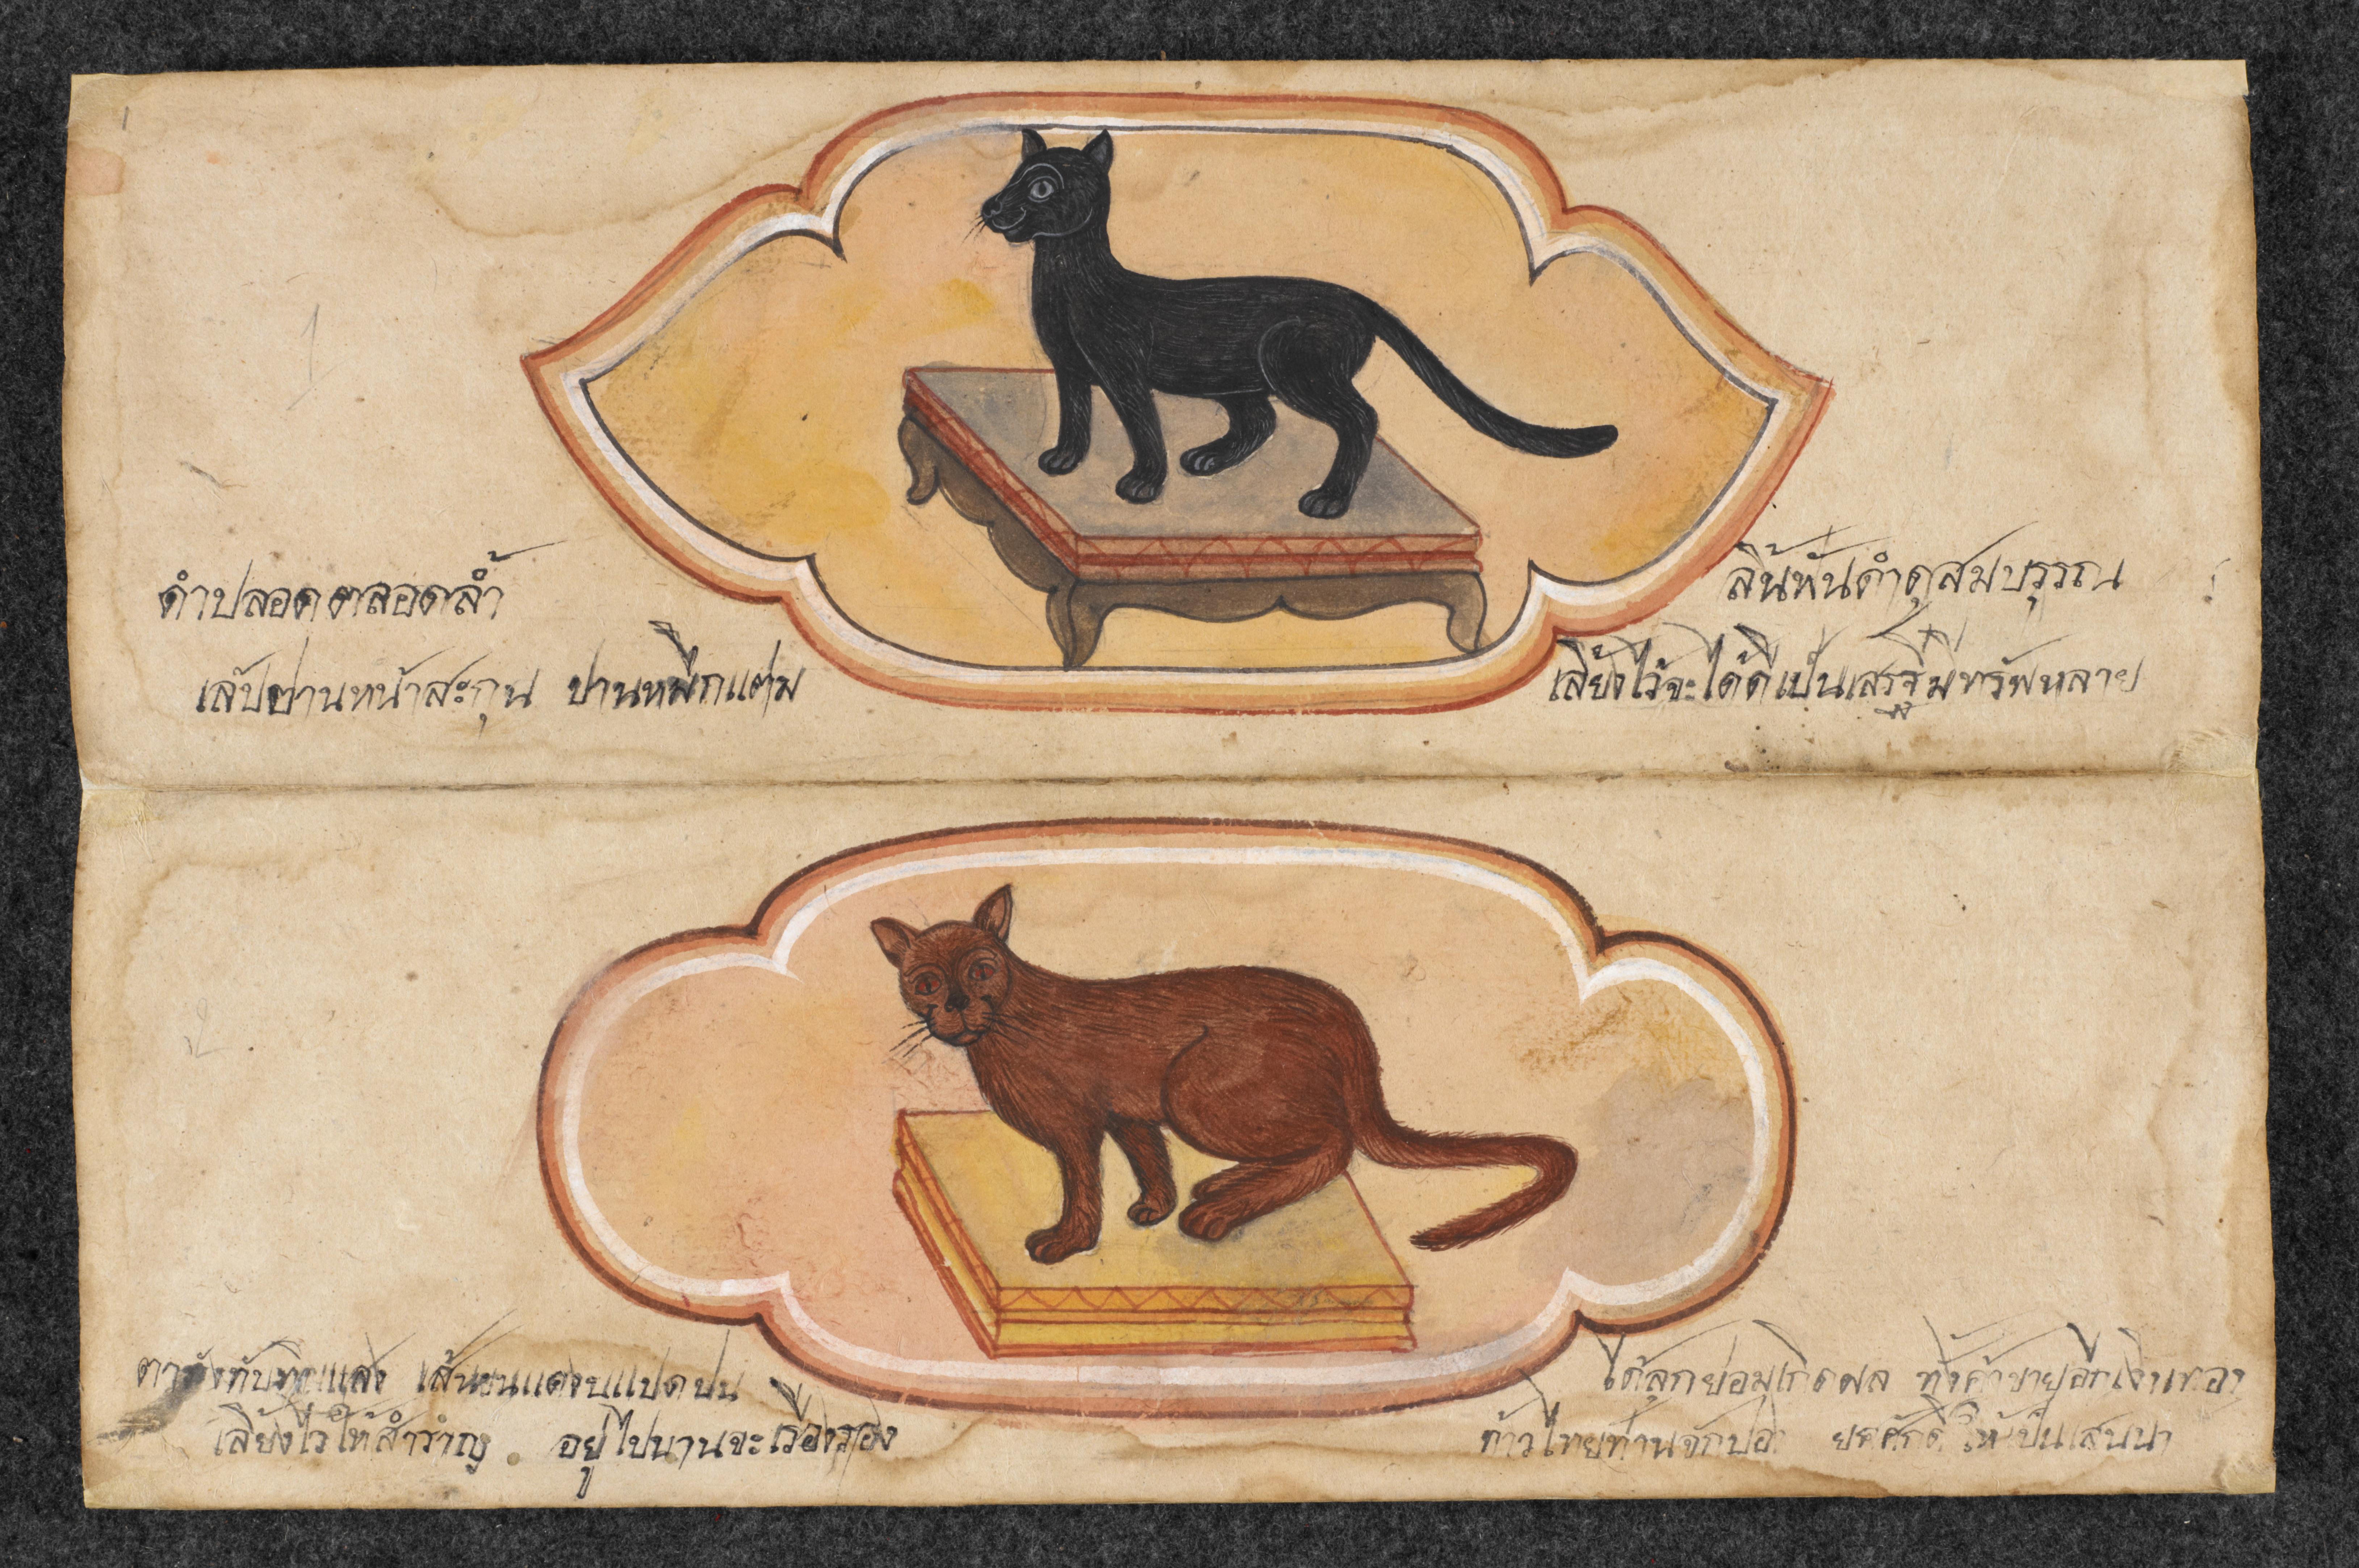 1
ดำปลอดตลอดล้ำ
ลิ้นฟันดำดุสมบรุรณ
เล้ปตานหน้าสะกุน ปานหมึกแต่ม
เลี้ยงไว้จะได้ดีเป็นเสรฐีมีทรัพหลาย
๒
แสง เส้นขนแดงบแปดปน
ได้ลูกย่อมเกิดผล ทั้งค้าขายอีกเงินทอง
เลี้ยงไว้ให้สำราญ อยู่ไปนานจะเรืองรอง
ท้าวไทยท่านจัก ยศศักดิให้เป็นเสนนา